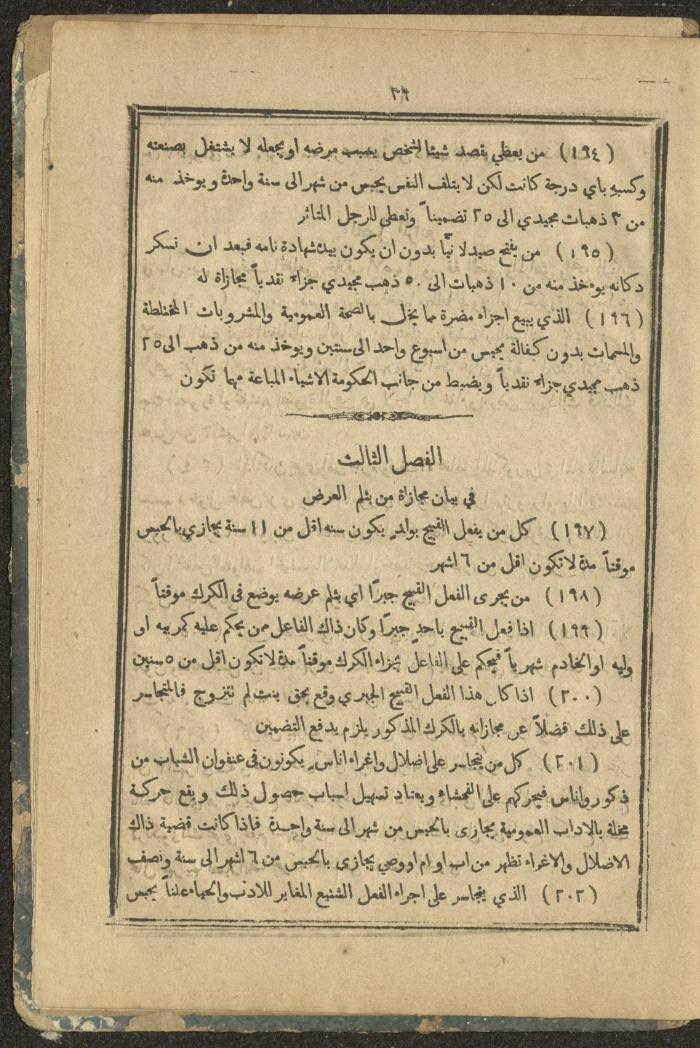 ٣٦
(١٩٤) من يعطي بقصد شيئا لشخص يسبب مرضه او يجعله لا يشتغل بصنعته
وكسبه باي درجة كانت لكن لا يتلف النفس يحبس من شهر الى سنة واحدة ويوخذ منه
من ٣ ذهبات مجيدي الى ٢٥ تضميناً وتعطى للرجل المتاثر
(١٩٥) من يفتح صيدلانيًا بدون ان يكون بيده شهادة نامه فبعد ان تسكر
دكانه يوخذ منه من ١٠ ذهبات الى ٥٠ ذهب مجيدي جزاء نقدياً مجازاة له
(١٩٦) الذي يبيع اجزاء مضرة مما يخل بالصحة العمومية والمشروبات المختلطة
والمسمات بدون كفالة يحبس من اسبوع واحد الى سنتين ويوخذ منه من ذهب الى ٢٥
ذهب مجيدي جزاء نقدياً ويضبط من جانب الحكومة الاشياء المباعة مهما تكون
الفصل الثالث
في بيان مجازاة من يثلم العرض
(١٩٧) كل من يفعل القبيح بولد يكون سنه اقل من ١١ سنة يجازي بالحبس
موقتاً مدة لا تكون اقل من ٦ اشهر
(١٩٨) من يجرى الفعل القبيح جبرًا اي يثلم عرضه يوضع فى الكرك موقتاً
(١٩٩) اذا فعل القبيح باحد جبرًا وكان ذاك الفاعل ممن يحكم عليه كمربيه او
وليه او الخادم شهرياً فيحكم على الفاعل بجزاء الكرك موقتاً مدة لا تكون اقل من ٥ سنين
(٢٠٠) اذا كان هذا الفعل القبيح الجبري وقع بحق بنت لم تتزوج فالمتجاسر
على ذلك فضلاً عن مجازاته بالكرك المذكور يلزم بدفع التضمين
(٢٠١) كل من يتجاسر على اضلال واغراء اناس يكونون فى عنفوان الشباب من
ذكور واناس فيحركهم على الفحشاء ويعتاد تسهيل اسباب حصول ذلك ويقع حركة
مخلة بالاداب العمومية يجازى بالحبس من شهر الى سنة واحدة فاذا كانت قضية ذاك
الاضلال والاغراء تظهر من اب او ام او وصي يجازى بالحبس من ٦ اشهر الى سنة ونصف
(٢٠٢) الذي يتجاسر على اجراء الفعل الشنيع المغاير للادب والحياء علناً يحبس